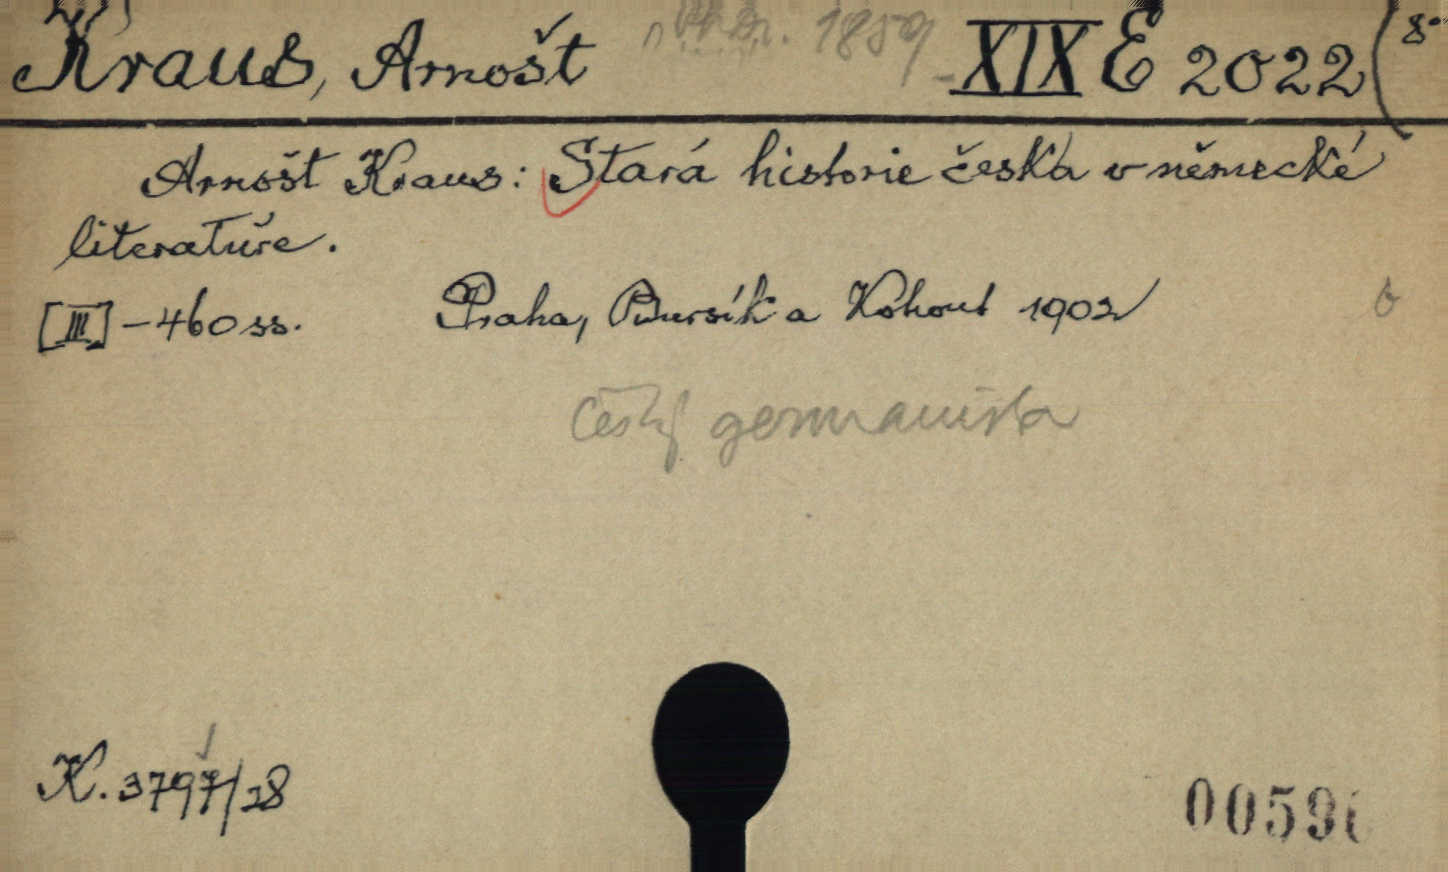 Kraus, Arnošt PhDr. 1859- XIX E 2022 (8°
Arnošt Kraus: Stará historie česká v německé
literatuře.
[III] - 460 ss. Praha, Bursík a Kohout 1902
český germanista
K. 3797/28
0059